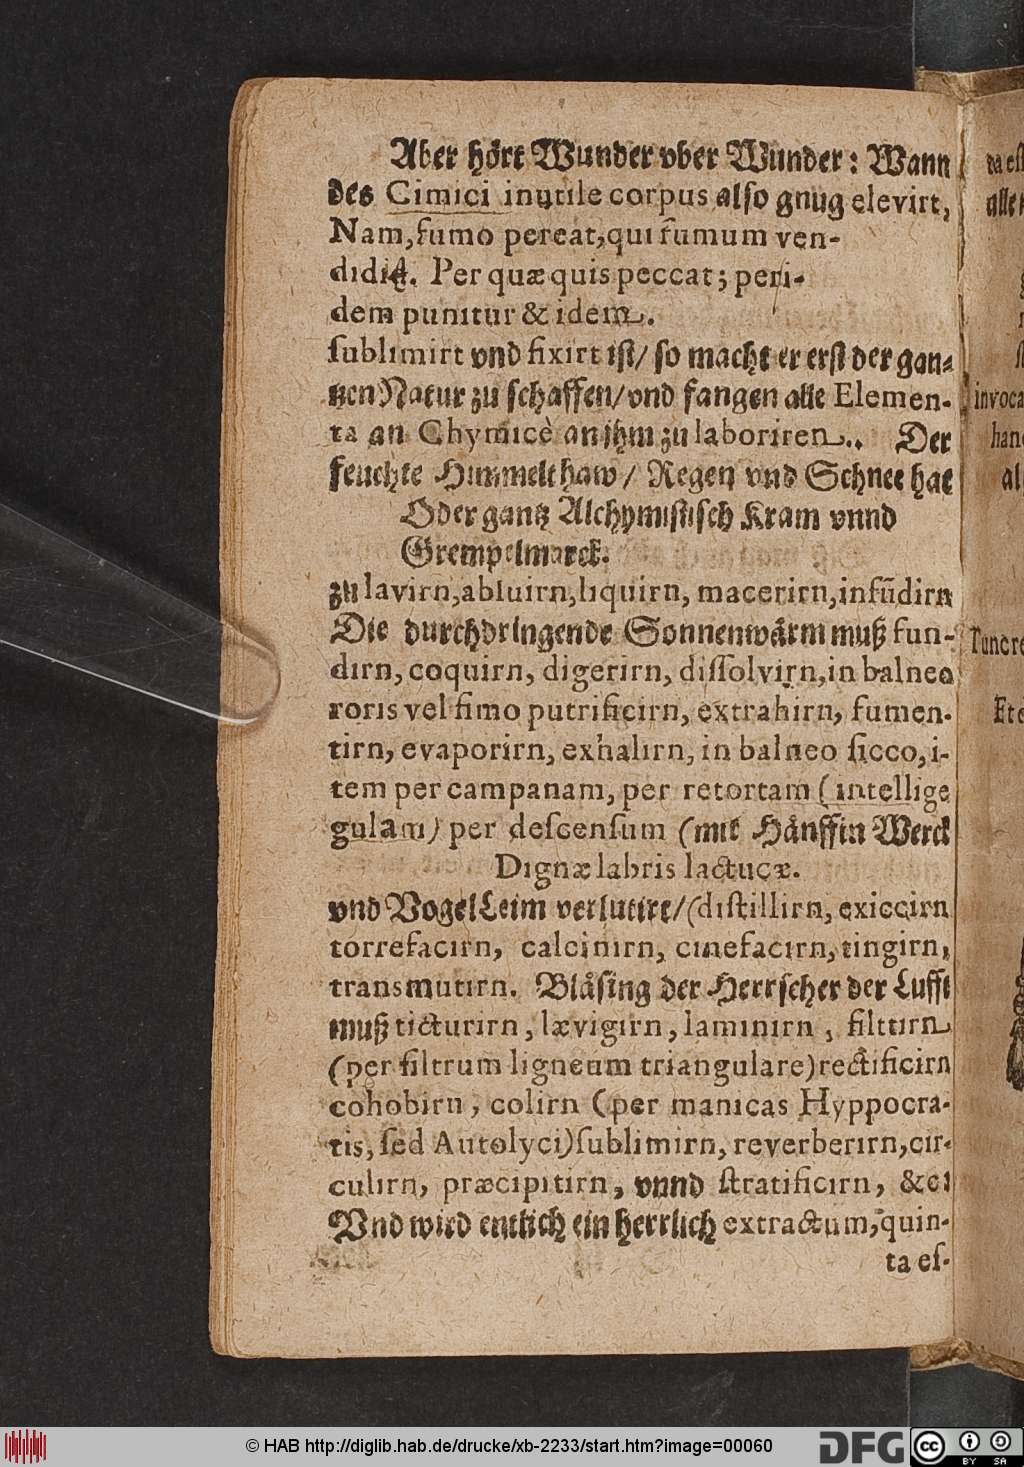 Aber hört Wunder vber Wunder: Wann
des Cimici inutile corpus also gnug elevirt,
Nam, fumo pereat, qui fumum ven-
didit. Per quæ quis peccat; peri-
dem punitur & idem.
sublimirt vnd fixirt ist/ so macht er erst der gan-
tzen Natur zu schaffen/ vnd fangen alle Elemen-
ta an Chymicè an jhm zu laboriren. Der
feuchte Himmelthaw/ Regen vnd Schnee hat
Oder gantz Alchymistisch Kram vnnd
Grempelmarck.
zu lavirn, abluirn, liquirn, macerirn, infūdirn
Die durchdringende Sonnenwärm muß fun-
dirn, coquirn, digerirn, dissolvirn, in balneo
roris vel fimo putrificirn, extrahirn, fumen-
tirn, evaporirn, exhalirn, in balneo sicco, i-
tem per campanam, per retortam (intellige
gulam) per descensum (mit Hänffin Werck
Dignæ labris lactucæ.
vnd Vogel Leim verlutirt/ (distillirn, exiccirn
torrefacirn, calcinirn, cinefacirn, tingirn,
transmutirn. Bläsing der Herrscher der Lufft
muß ticturirn, lævigirn, laminirn, filttirn
(per filtrum ligneum triangulare) rectificirn
cohobirn, colirn (per manicas Hyppocra-
tis, sed Autolyci) sublimirn, reverberirn, cir-
culirn, præcipitirn, vnnd stratificirn, &c:
Vnd wird entlich ein herrlich extractum, quin-
ta es-
da est
alle
invoca
hand
al
Tuncre
Et
© HAB http://diglib.hab.de/drucke/xb-2233/start.htm?image=00060
DFG
cc BY SA